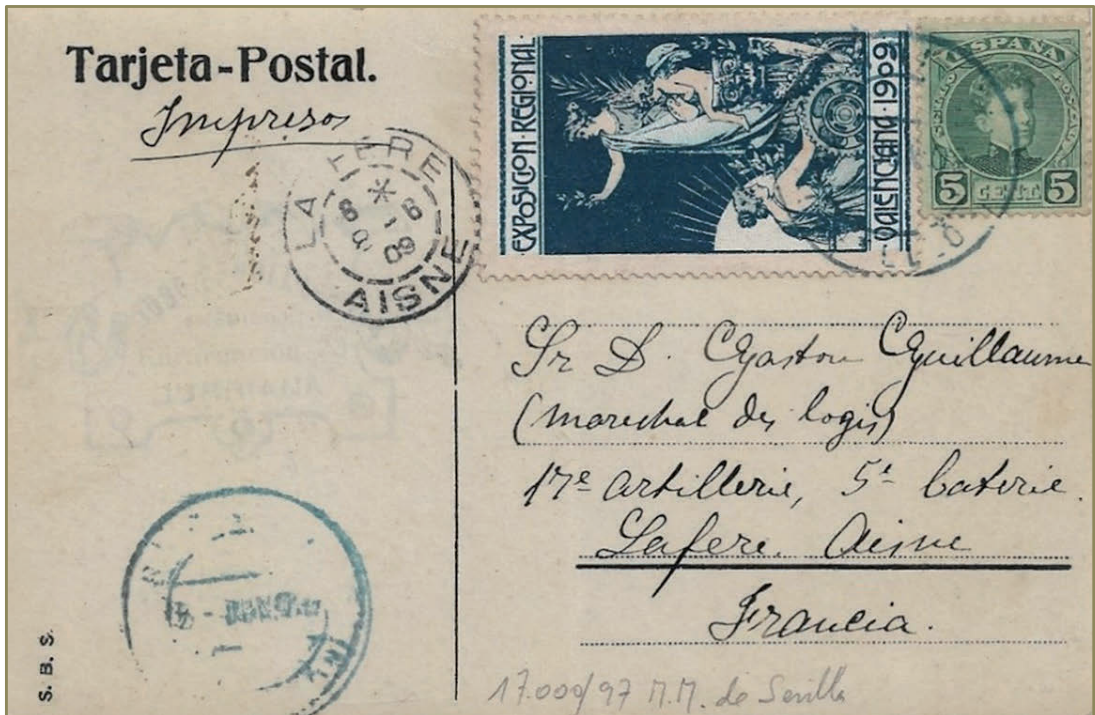 Tarjeta-Postal.
Impresos
LA FERE
8 6
8 09
AISNE
EXPOSICION · REGIONAL
VALENCIANA · 1909
ESPAÑA
5 CENT. 5
Sr D. Gaston Guillaume
(marechal des logis)
17e artillerie, 5e baterie.
Lafere. Aisne
Francia.
S. B. S.
17.000/97 M.M. de Sevilla